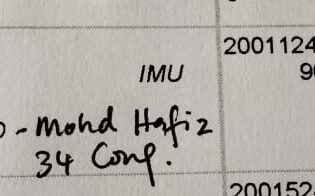 2001124
IMU
9
- Mohd Hafiz
34 Conf.
200152